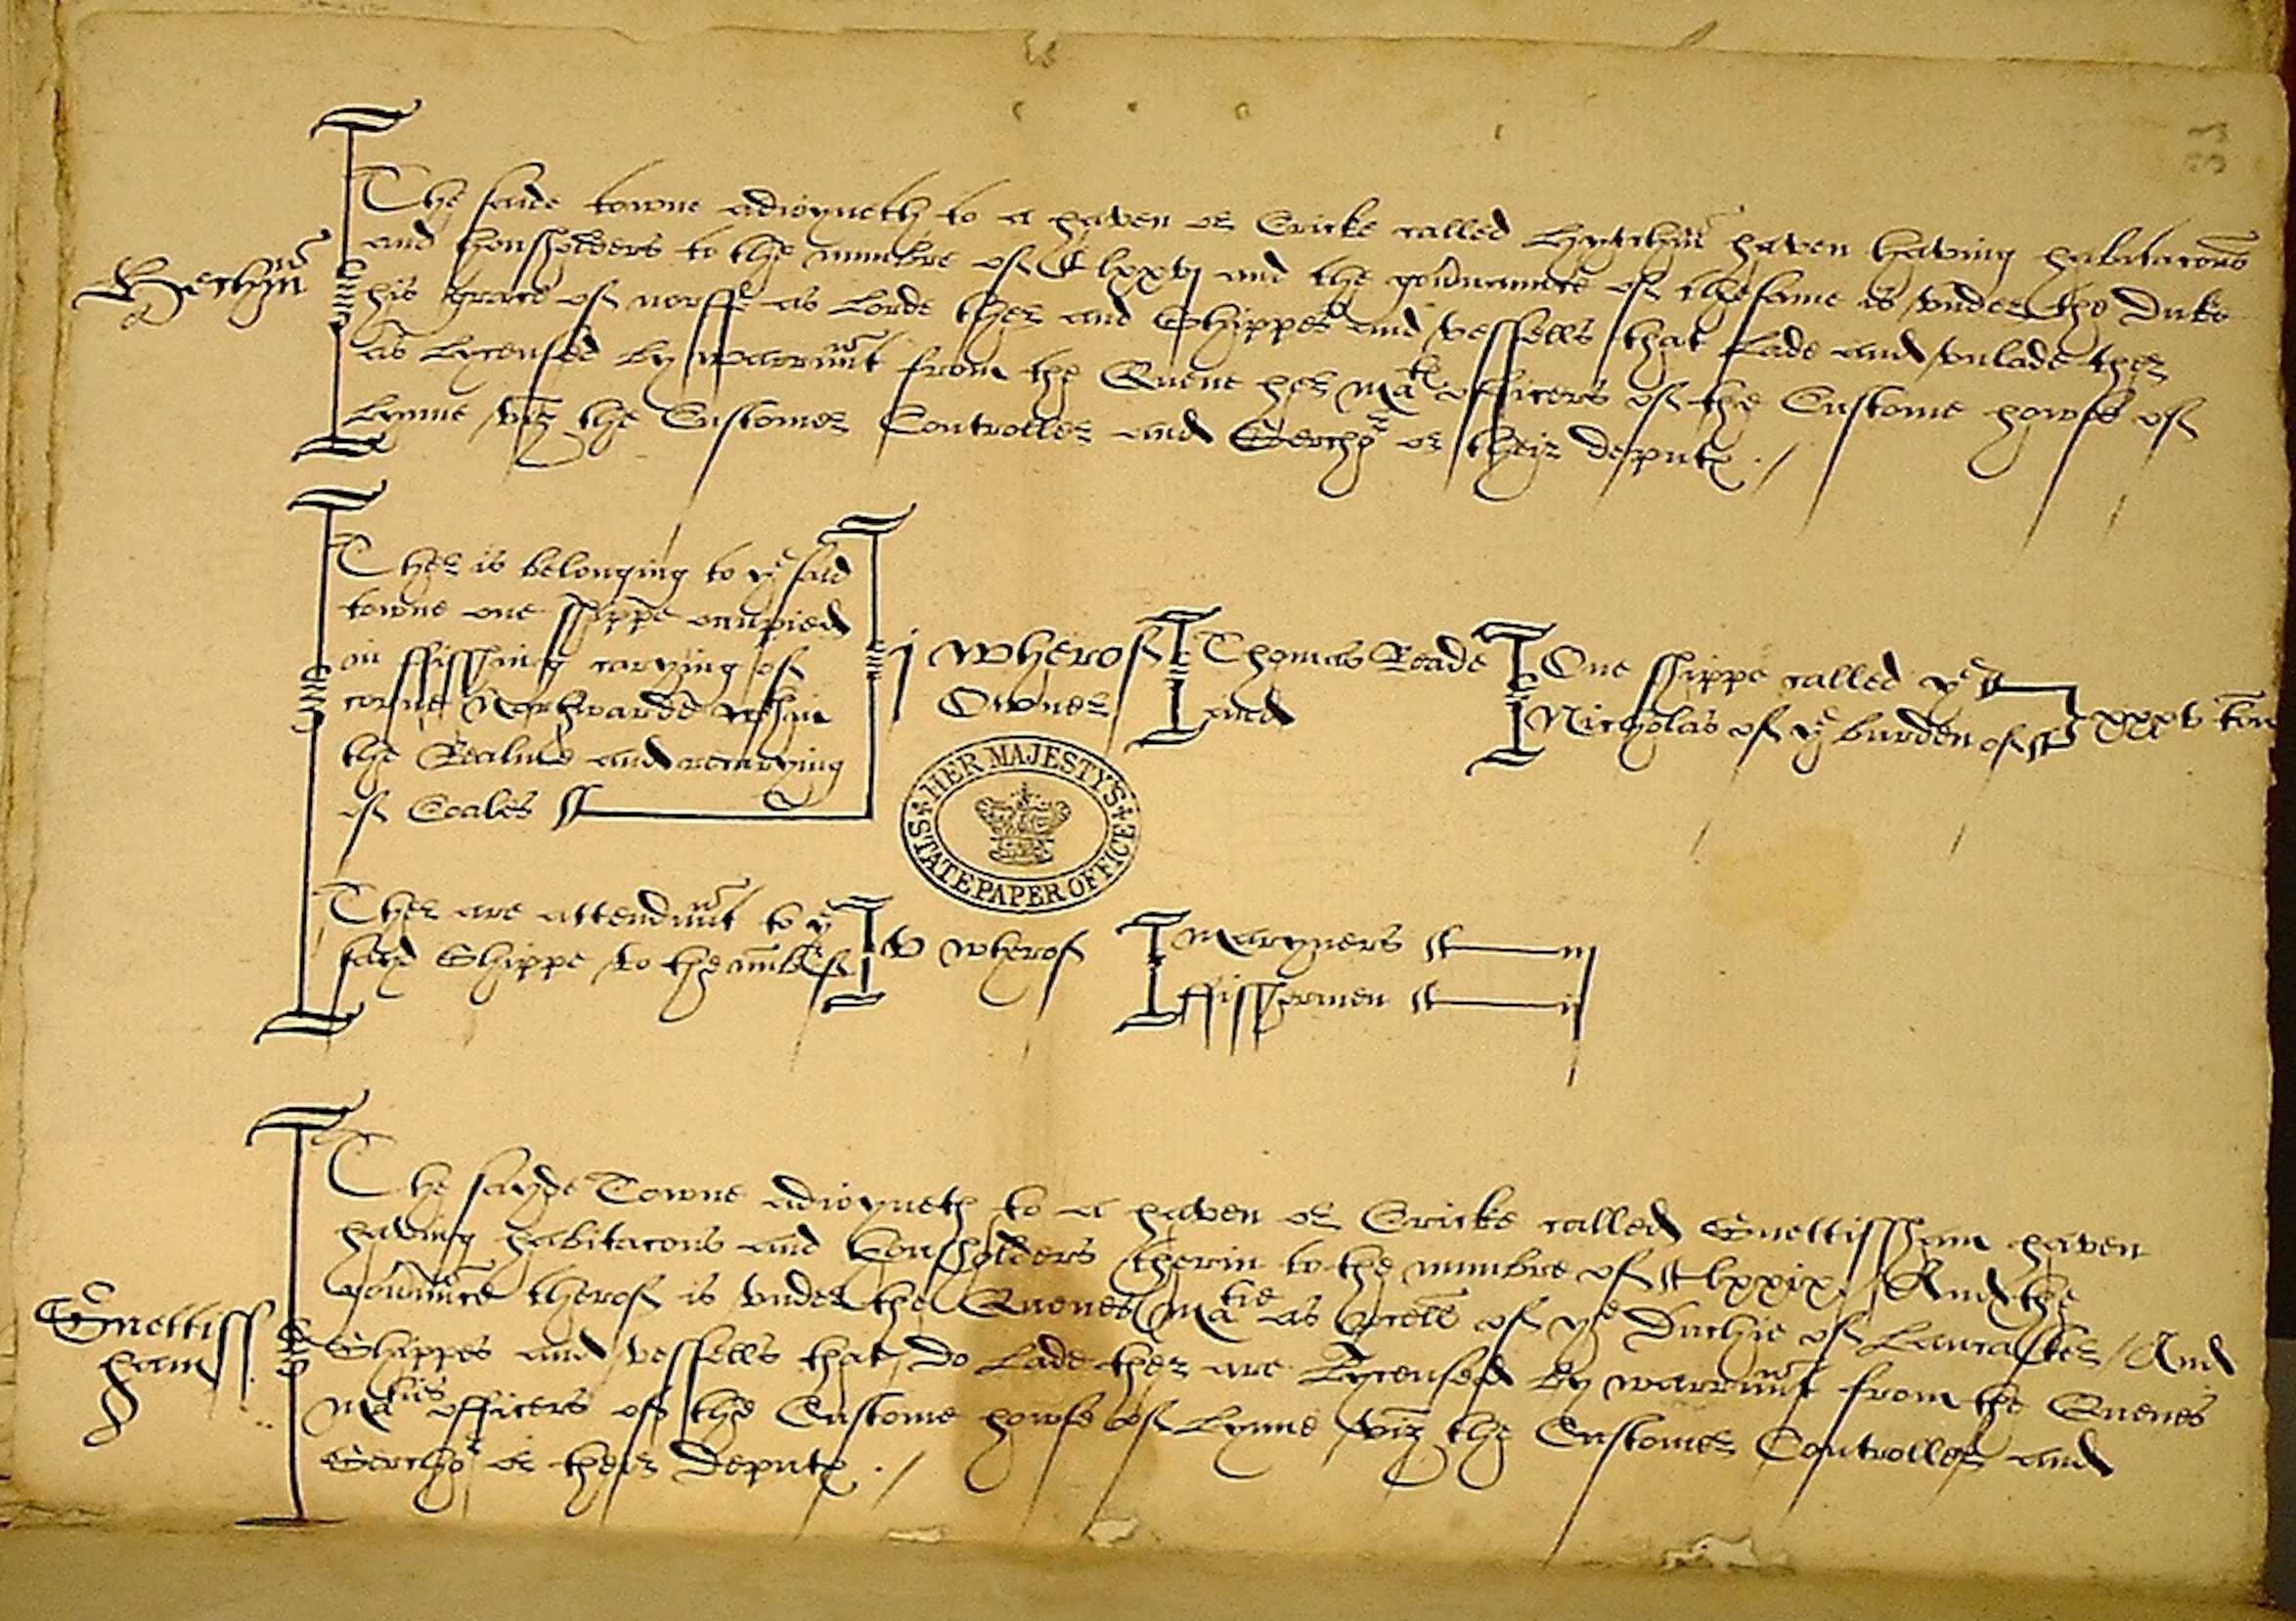 The saide towne adioyneth to a haven or Cricke called Hytchm̃ haven having habitacons
and housholders to the numbre of lxxvj and the gou̇nannce of thesame is vnder the Duke
Hechm̃
his grace of norff as Lorde ther and Shippes and vessells that Lade and vnlade ther
as Lycensed by warrñt from the Quene her Ma^te officers of the Custome howse of
Lynne viz the Customer Controller and Serchor or their deputx ./
Ther is belonging to y^e said
towne one shippe occupied
in ffisshing carying of
corne Northwarde w^thin
the Realme and recarying
of Coales
j wherof
Owner
Thomas Reade
and
One shippe called y^e
Nicholas of y^e burden of
xxxv ton
HER MAJESTY'S STATE PAPER OFFICE
Ther are attendñt to y^e
sayd Shippe to the nũbre of
v wherof
Maryners iij
ffisshermen ij
The sayde Towne adioyneth to a haven or Cricke called Snettissham haven
having habitacons and housholders therin to the numbre of lxxix / And the
gou̇nñce therof is vnder the Quenes Ma^tie as of y^e Duchie of Lancaster / And
Snettiss
ham
Shippes and vessells that do Lade ther are Lycensed by warrñt from the Quenes
Ma^ties officers of the Custome howse of Lynne viz the Customer Controller and
Serchor or their deputx ./